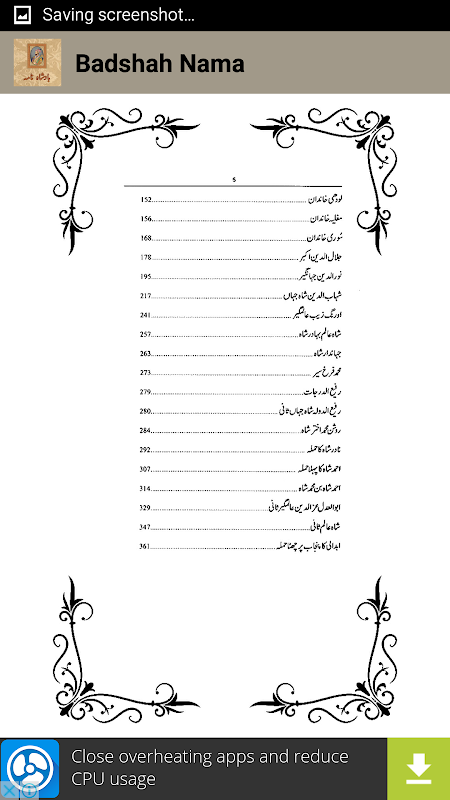 Saving screenshot…
بادشاہ نامہ
Badshah Nama
5
لودھی خاندان ........ 152
مغلیہ خاندان ........ 156
سُوری خاندان ........ 168
جلال الدین اکبر ........ 178
نور الدین جہانگیر ........ 195
شہاب الدین شاہ جہاں ........ 217
اورنگ زیب عالمگیر ........ 241
شاہ عالم بہادر شاہ ........ 257
جہاندار شاہ ........ 263
محمد فرخ سیر ........ 273
رفیع الدرجات ........ 279
رفیع الدولہ شاہ جہاں ثانی ........ 280
روشن محمد اختر شاہ ........ 284
نادر شاہ کا حملہ ........ 292
احمد شاہ کا پہلا حملہ ........ 307
احمد شاہ بن محمد شاہ ........ 314
ابو العدل عزالدین عالمگیر ثانی ........ 329
شاہ عالم ثانی ........ 347
ابدالی کا پنجاب پر چھٹا حملہ ........ 361
Close overheating apps and reduce
CPU usage